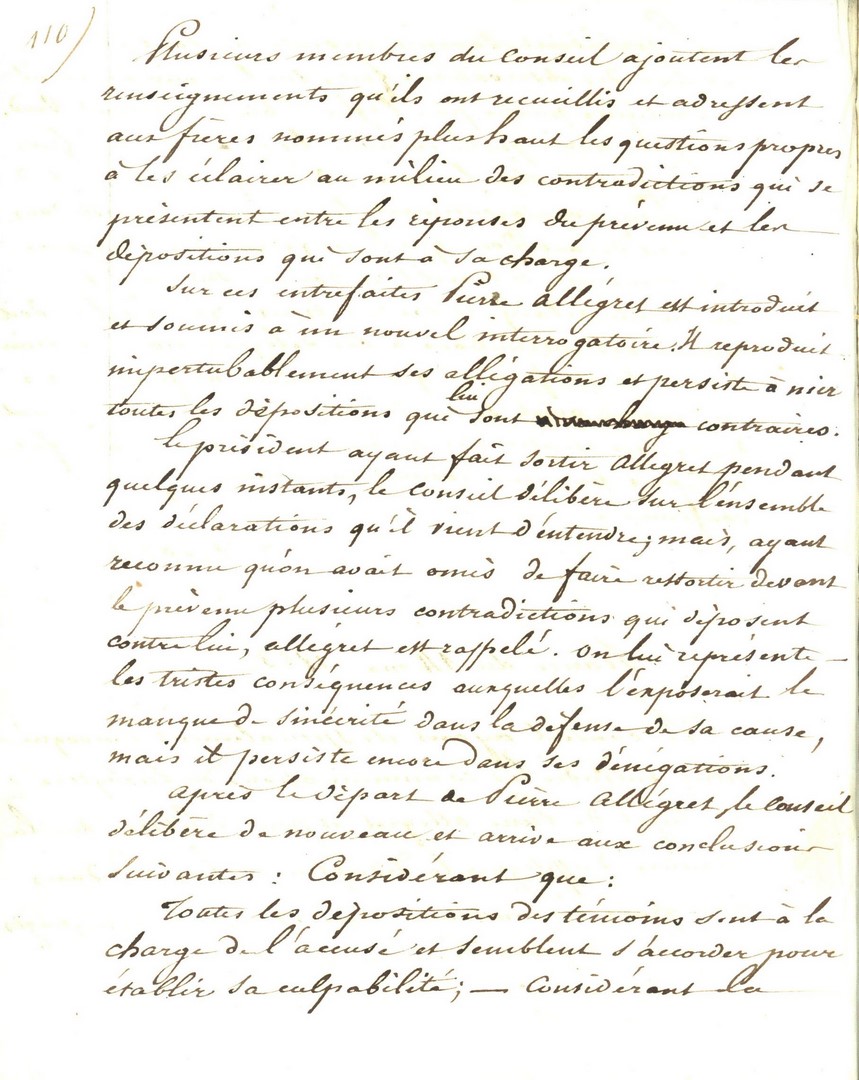 110)
Plusieurs membres du Conseil ajoutent les
renseignements qu'ils ont recueillis et adressent
aux frères nommés plus haut les questions propres
à les éclairer au milieu des contradictions qui se
présentent entre les réponses du prévenu et les
dépositions qui sont à sa charge.
Sur ces entrefaites Pierre Allégret est introduit
et soumis à un nouvel interrogatoire. Il reproduit
imperturbablement ses allégations et persiste à nier
toutes les dépositions qui lui sont contraires.
Le président ayant fait sortir Allégret pendant
quelques instants, le conseil délibère sur l'ensemble
des déclarations qu'il vient d'entendre; mais, ayant
reconnu qu'on avait omis de faire ressortir devant
le prévenu plusieurs contradictions qui déposent
contre lui, Allégret est rappelé. On lui représente
les tristes conséquences auxquelles l'exposerait le
manque de sincérité dans la défense de sa cause,
mais il persiste encore dans ses dénégations.
Après le départ de Pierre Allégret, le conseil
délibère de nouveau et arrive aux conclusions
suivantes : Considérant que :
Toutes les dépositions des témoins sont à la
charge de l'accusé et semblent s'accorder pour
établir sa culpabilité; — Considérant la